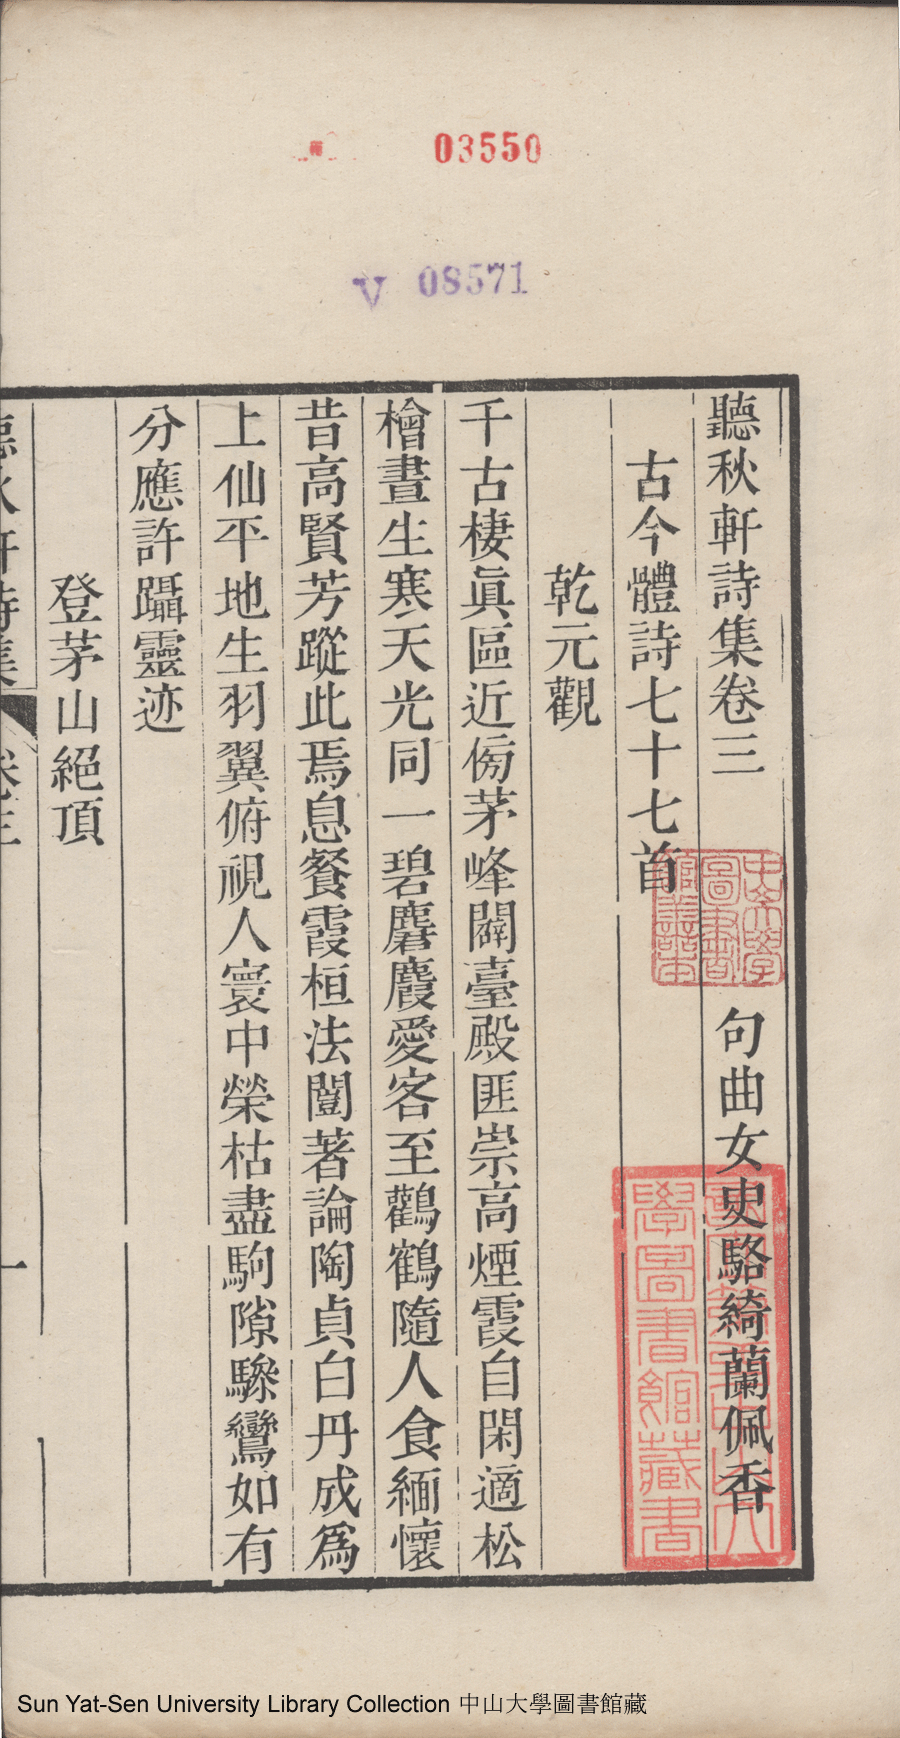 03550
V 08571
聽秋軒詩集卷三
句曲女史駱綺蘭佩香
古今體詩七十七首
乾元觀
千古棲眞區近傍茅峰闢臺殿匪崇高煙霞自閑適松
檜晝生寒天光同一碧麏麚愛客至鸛鶴隨人食緬懷
昔高賢芳蹤此焉息餐霞桓法闓著論陶貞白丹成爲
上仙平地生羽翼俯視人寰中榮枯盡駒隙驂鸞如有
分應許躡靈迹
登茅山絕頂
聽秋軒詩集
卷三
一
中山大學圖書館善本
學圖書館藏書
Sun Yat-Sen University Library Collection 中山大學圖書館藏